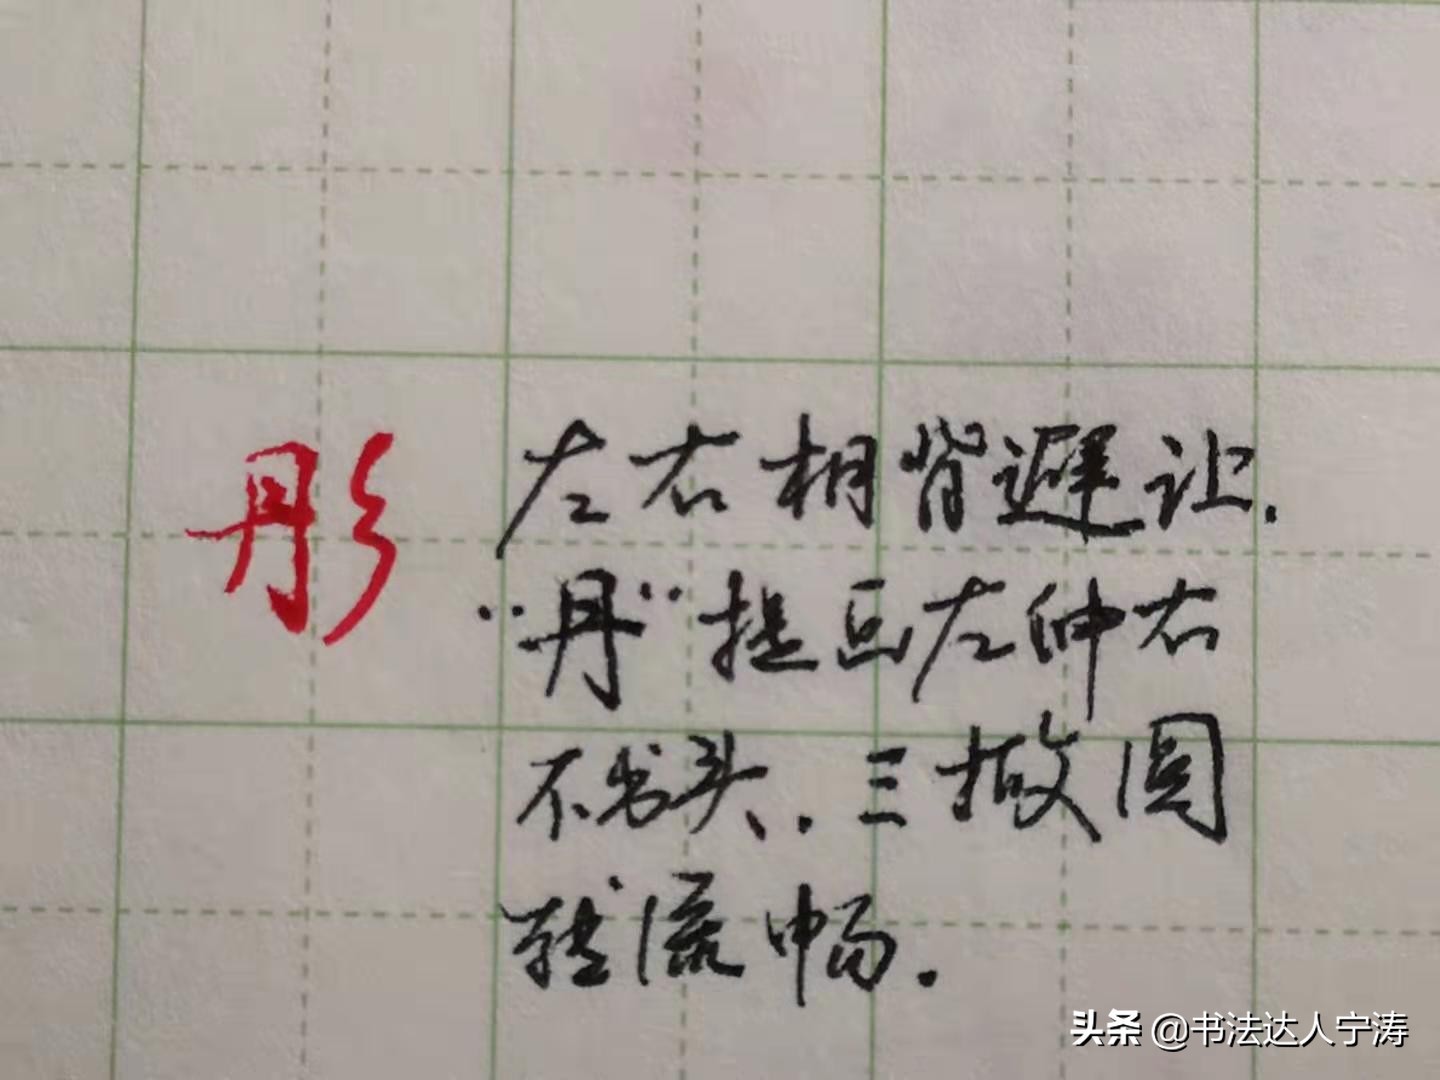 彤
左右相背避让.
“丹”提画左伸右
不出头.三撇圆
转流畅.
头条 @书法达人宁涛